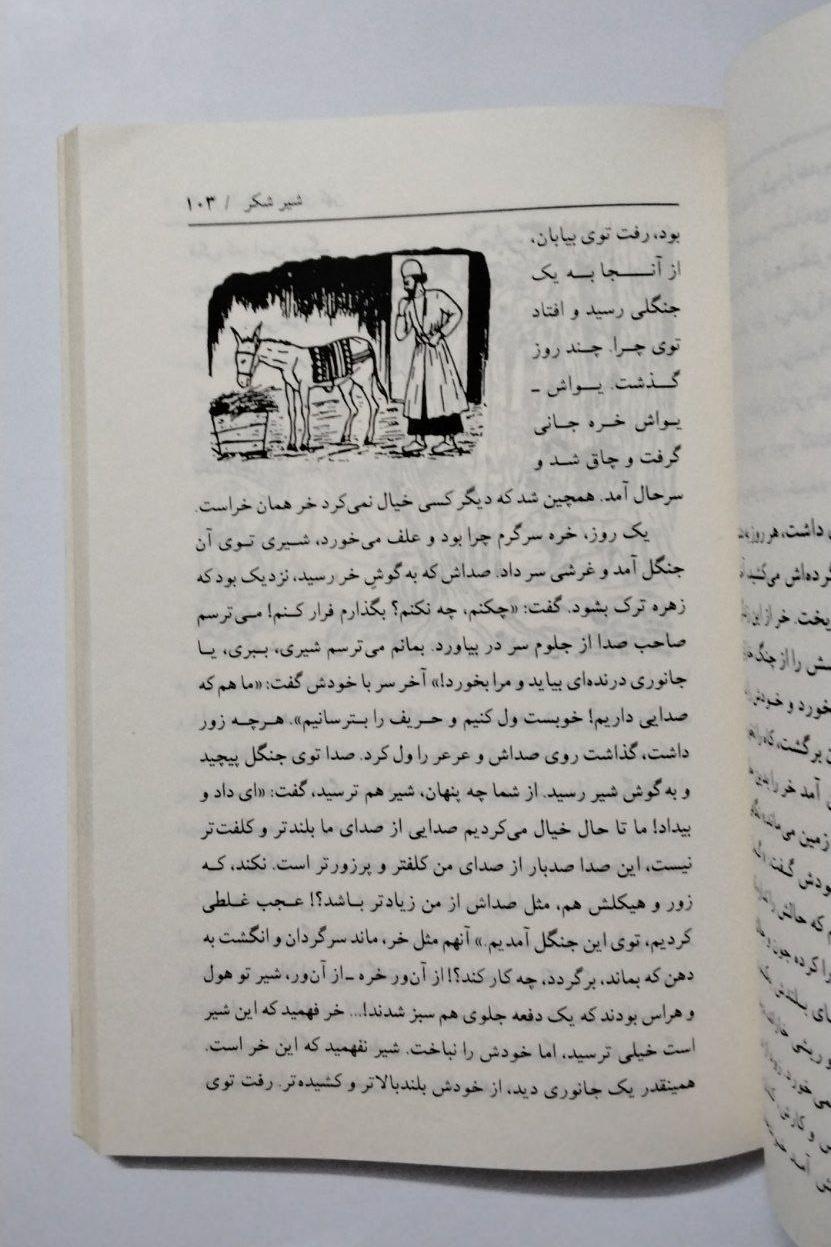 شیر شکر / ۱۰۳
بود، رفت توی بیابان،
از آنجا به یک
جنگلی رسید و افتاد
توی چرا. چند روز
گذشت. یواش -
یواش خره جانی
گرفت و چاق شد و
سرحال آمد. همچین شد که دیگر کسی خیال نمی‌کرد خر همان خراست.
یک روز، خره سرگرم چرا بود و علف می‌خورد، شیری توی آن
جنگل آمد و غرشی سر داد. صداش که به گوشِ خر رسید، نزدیک بود که
زهره ترک بشود. گفت: «چکنم، چه نکنم؟ بگذارم فرار کنم! می‌ترسم
صاحب صدا از جلوم سر در بیاورد. بمانم می‌ترسم شیری، ببری، یا
جانوری درنده‌ای بیاید و مرا بخورد!» آخر سر با خودش گفت: «ما هم که
صدایی داریم! خوبست ول کنیم و حریف را بترسانیم». هرچه زور
داشت، گذاشت روی صداش و عرعر را ول کرد. صدا توی جنگل پیچید
و به گوش شیر رسید. از شما چه پنهان، شیر هم ترسید، گفت: «ای داد و
بیداد! ما تا حال خیال می‌کردیم صدایی از صدای ما بلندتر و کلفت‌تر
نیست، این صدا صدبار از صدای من کلفتر و پرزورتر است. نکند، که
زور و هیکلش هم، مثل صداش از من زیادتر باشد؟! عجب غلطی
کردیم، توی این جنگل آمدیم.» آنهم مثل خر، ماند سرگردان و انگشت به
دهن که بماند، برگردد، چه کار کند؟! از آن‌ور خره ـ از آن‌ور، شیر تو هول
و هراس بودند که یک دفعه جلوی هم سبز شدند!... خر فهمید که این شیر
است خیلی ترسید، اما خودش را نباخت. شیر نفهمید که این خر است.
همینقدر یک جانوری دید، از خودش بلندبالاتر و کشیده‌تر. رفت توی
داشت، هر روز
می‌کشید
خر از این
را از جنگ
خورد و خودش
برگشت، کاه را
آمد خر را
زمین می‌ماند
خودش گفت:
که حالش را